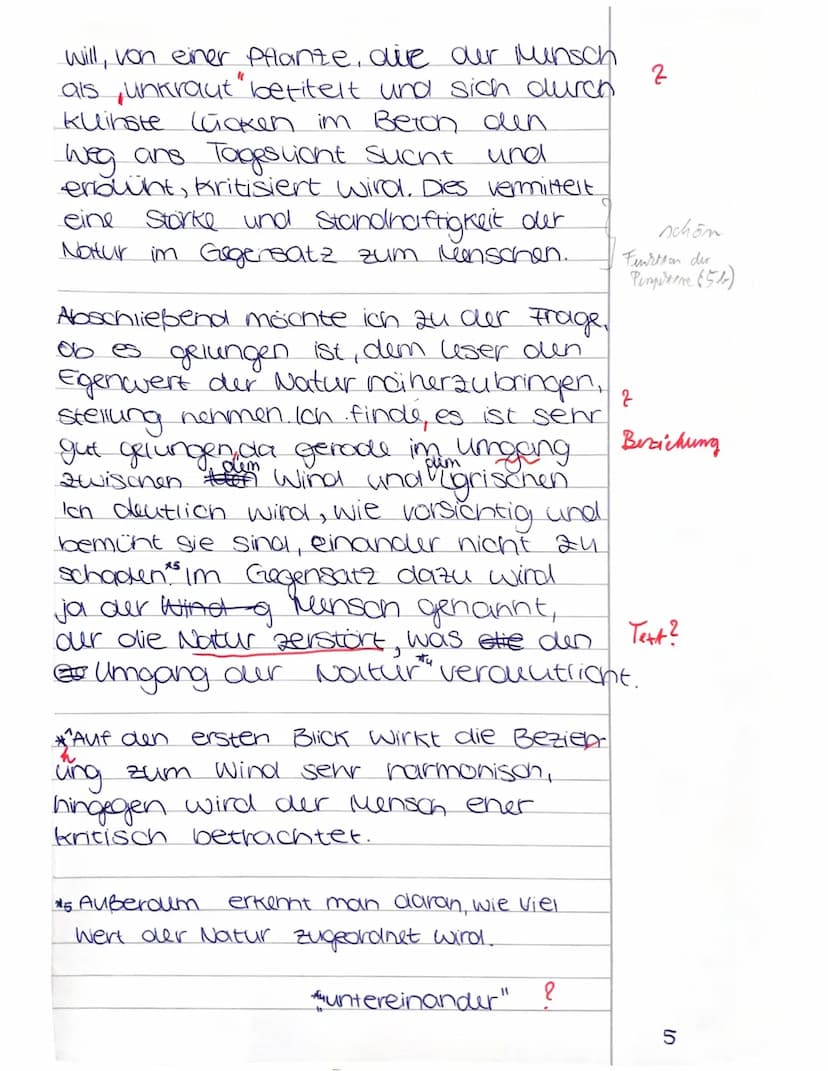 will, von einer Pflanze, die der Mensch
als „unkraut" betitelt und sich durch
kleinste Lücken im Beton den
Weg ans Tageslicht sucht und
erblüht, kritisiert wird. Dies vermittelt
eine Stärke und Standhaftigkeit der
Natur im Gegensatz zum Menschen.
Z
schön
Funktion der
(5b)
Abschließend möchte ich zu der Frage,
ob es gelungen ist, dem Leser den
Eigenwert der Natur näherzubringen,
stellung nehmen. Ich finde, es ist sehr
gut gelungen, da gerade im Umgang
zwischen dem Wind und dem lyrischen
Ich deutlich wird, wie vorsichtig und
bemüht sie sind, einander nicht zu
schaden.*5 Im Gegensatz dazu wird
ja der Wind g Mensch genannt,
der die Natur zerstört, was die den
Umgang der Natur*4 verdeutlicht.
Z
Beziehung
Text?
*1 Auf den ersten Blick wirkt die Bezieh
ung zum Wind sehr harmonisch,
hingegen wird der Mensch eher
kritisch betrachtet.
*5 Außerdem erkennt man daran, wie viel
Wert der Natur zugeordnet wird.
*4 untereinander" ?
5